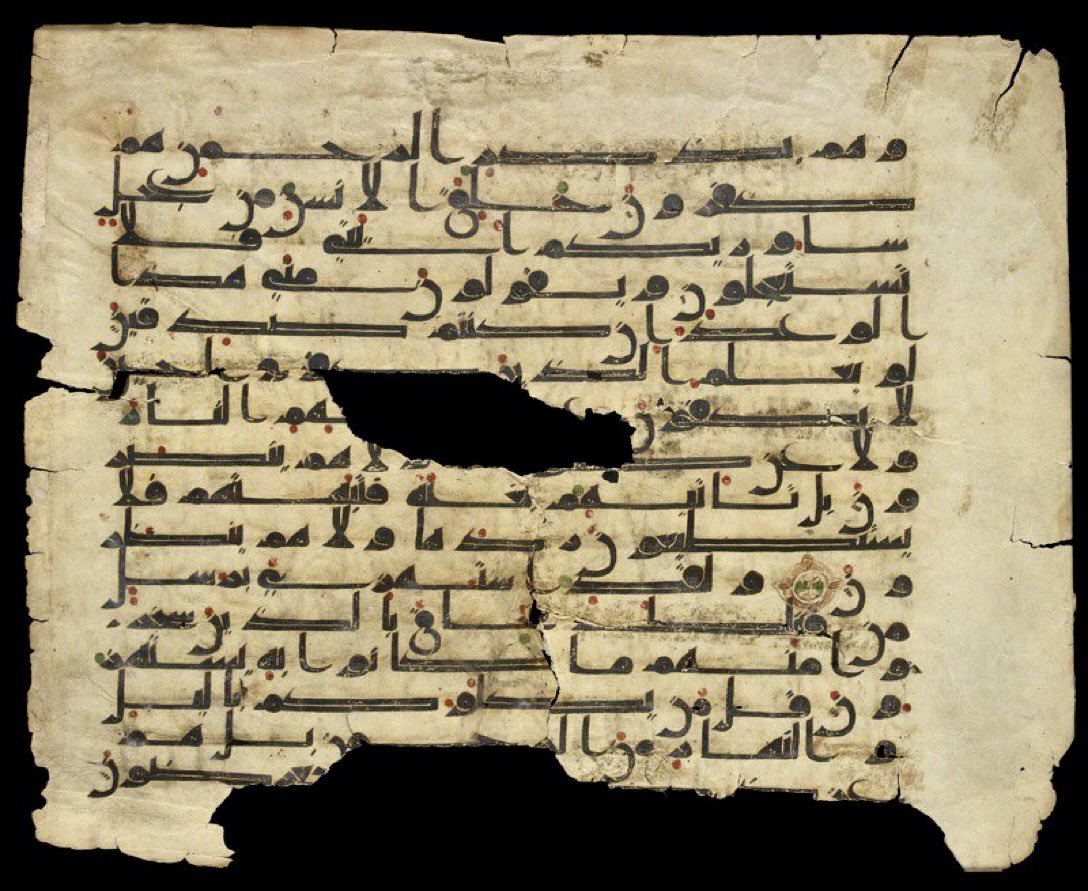 وهم بذكر الرحمن هم
كفرون خلق الانسن من عجل
ساوريكم ايتي فلا
تستعجلون ويقولون متي هذا
الوعد ان كنتم صدقين
لو يعلم الذين كفروا حين
لا يكفون النار
ولا عن ولا هم ينصر
ون بل تاتيهم بغتة فتبهتهم فلا
يستطيعون ردها ولا هم ينظر
ون ولقد استهزي برسل
من قبلك فحاق بالذين سخر
وا منهم ما كانوا به يستهز
ون قل من يكلوكم باليل
والنهار من الرحمن بل هم
عن معرضون